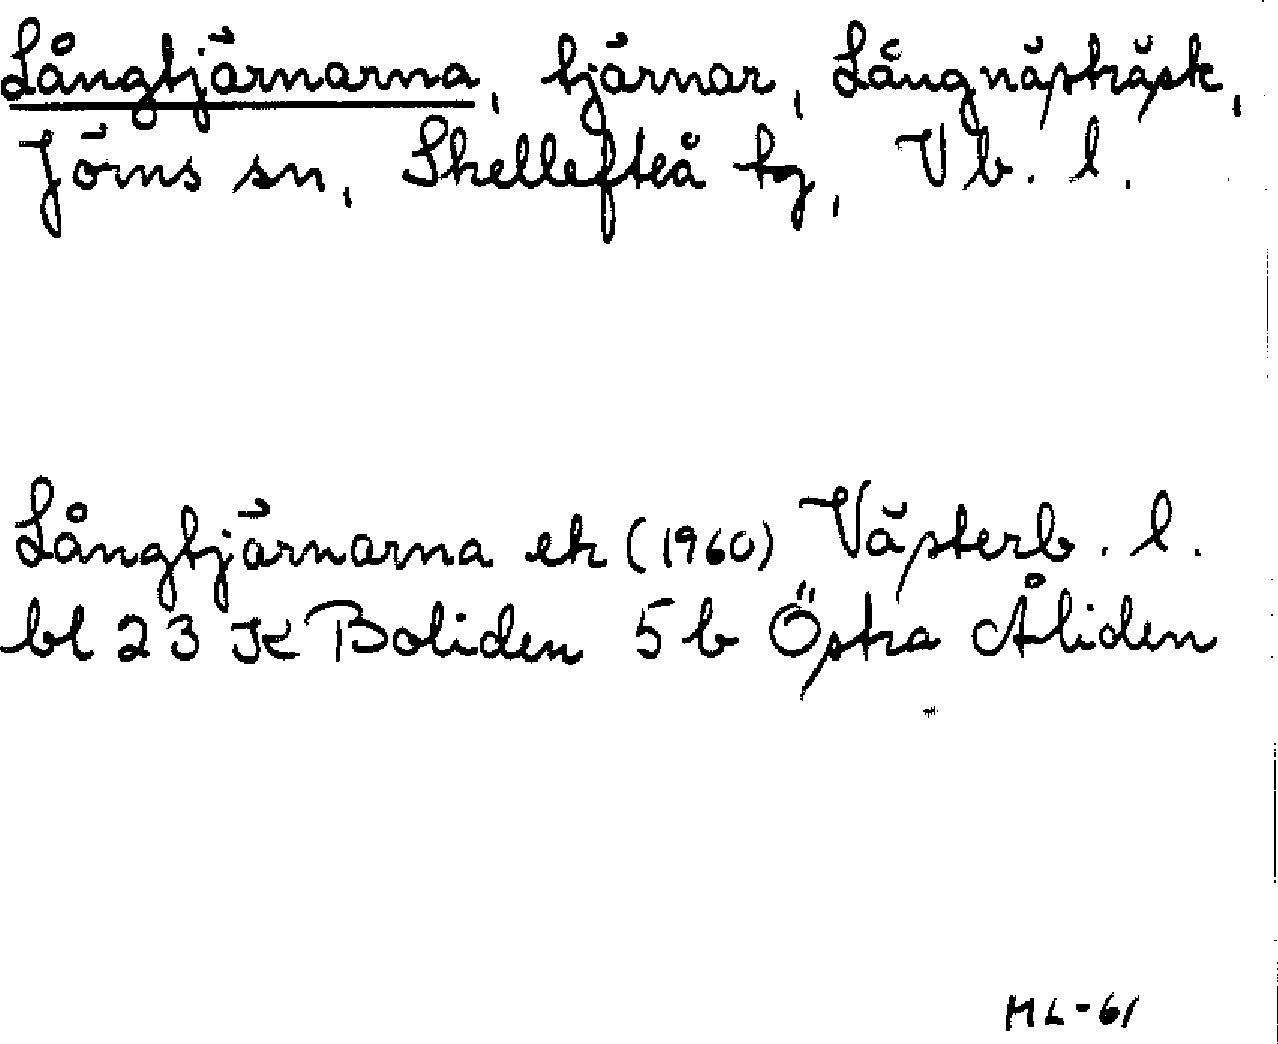 Långtjärnarna, tjärnar, Långnästräsk,
Jörns sn, Skellefteå tg, Vb. l.
Långtjärnarna ek (1960) Västerb. l.
bl 23 K Boliden 5 b Östra Åliden
ML-61